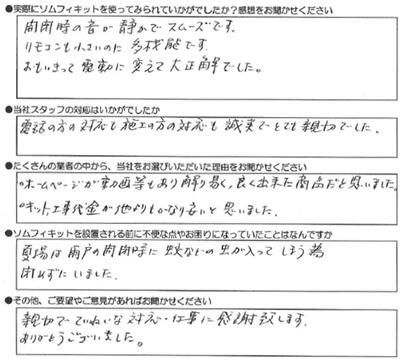 ●実際にソムフィキットを使ってみられていかがでしたか？感想をお聞かせください
開閉時の音が静かでスムーズです。
リモコンも小さいのに多機能です。
おもいきって電動に変えて大正解でした。
●当社スタッフの対応はいかがでしたか
電話の方の対応も施工の方の対応も誠実でとても親切でした。
●たくさんの業者の中から、当社をお選びいただいた理由をお聞かせください
○ホームページが動画等もあり解り易く、良く出来た商品だと思いました。
○キット、工事代金が他よりもかなり安いと思いました。
●ソムフィキットを設置される前に不便な点やお困りになっていたことはなんですか
夏場は雨戸の開閉時に蚊などの虫が入ってしまう為
閉めずにいました。
●その他、ご要望やご意見があればお聞かせください
親切でていねいな対応・仕事に感謝致します。
ありがとうございました。